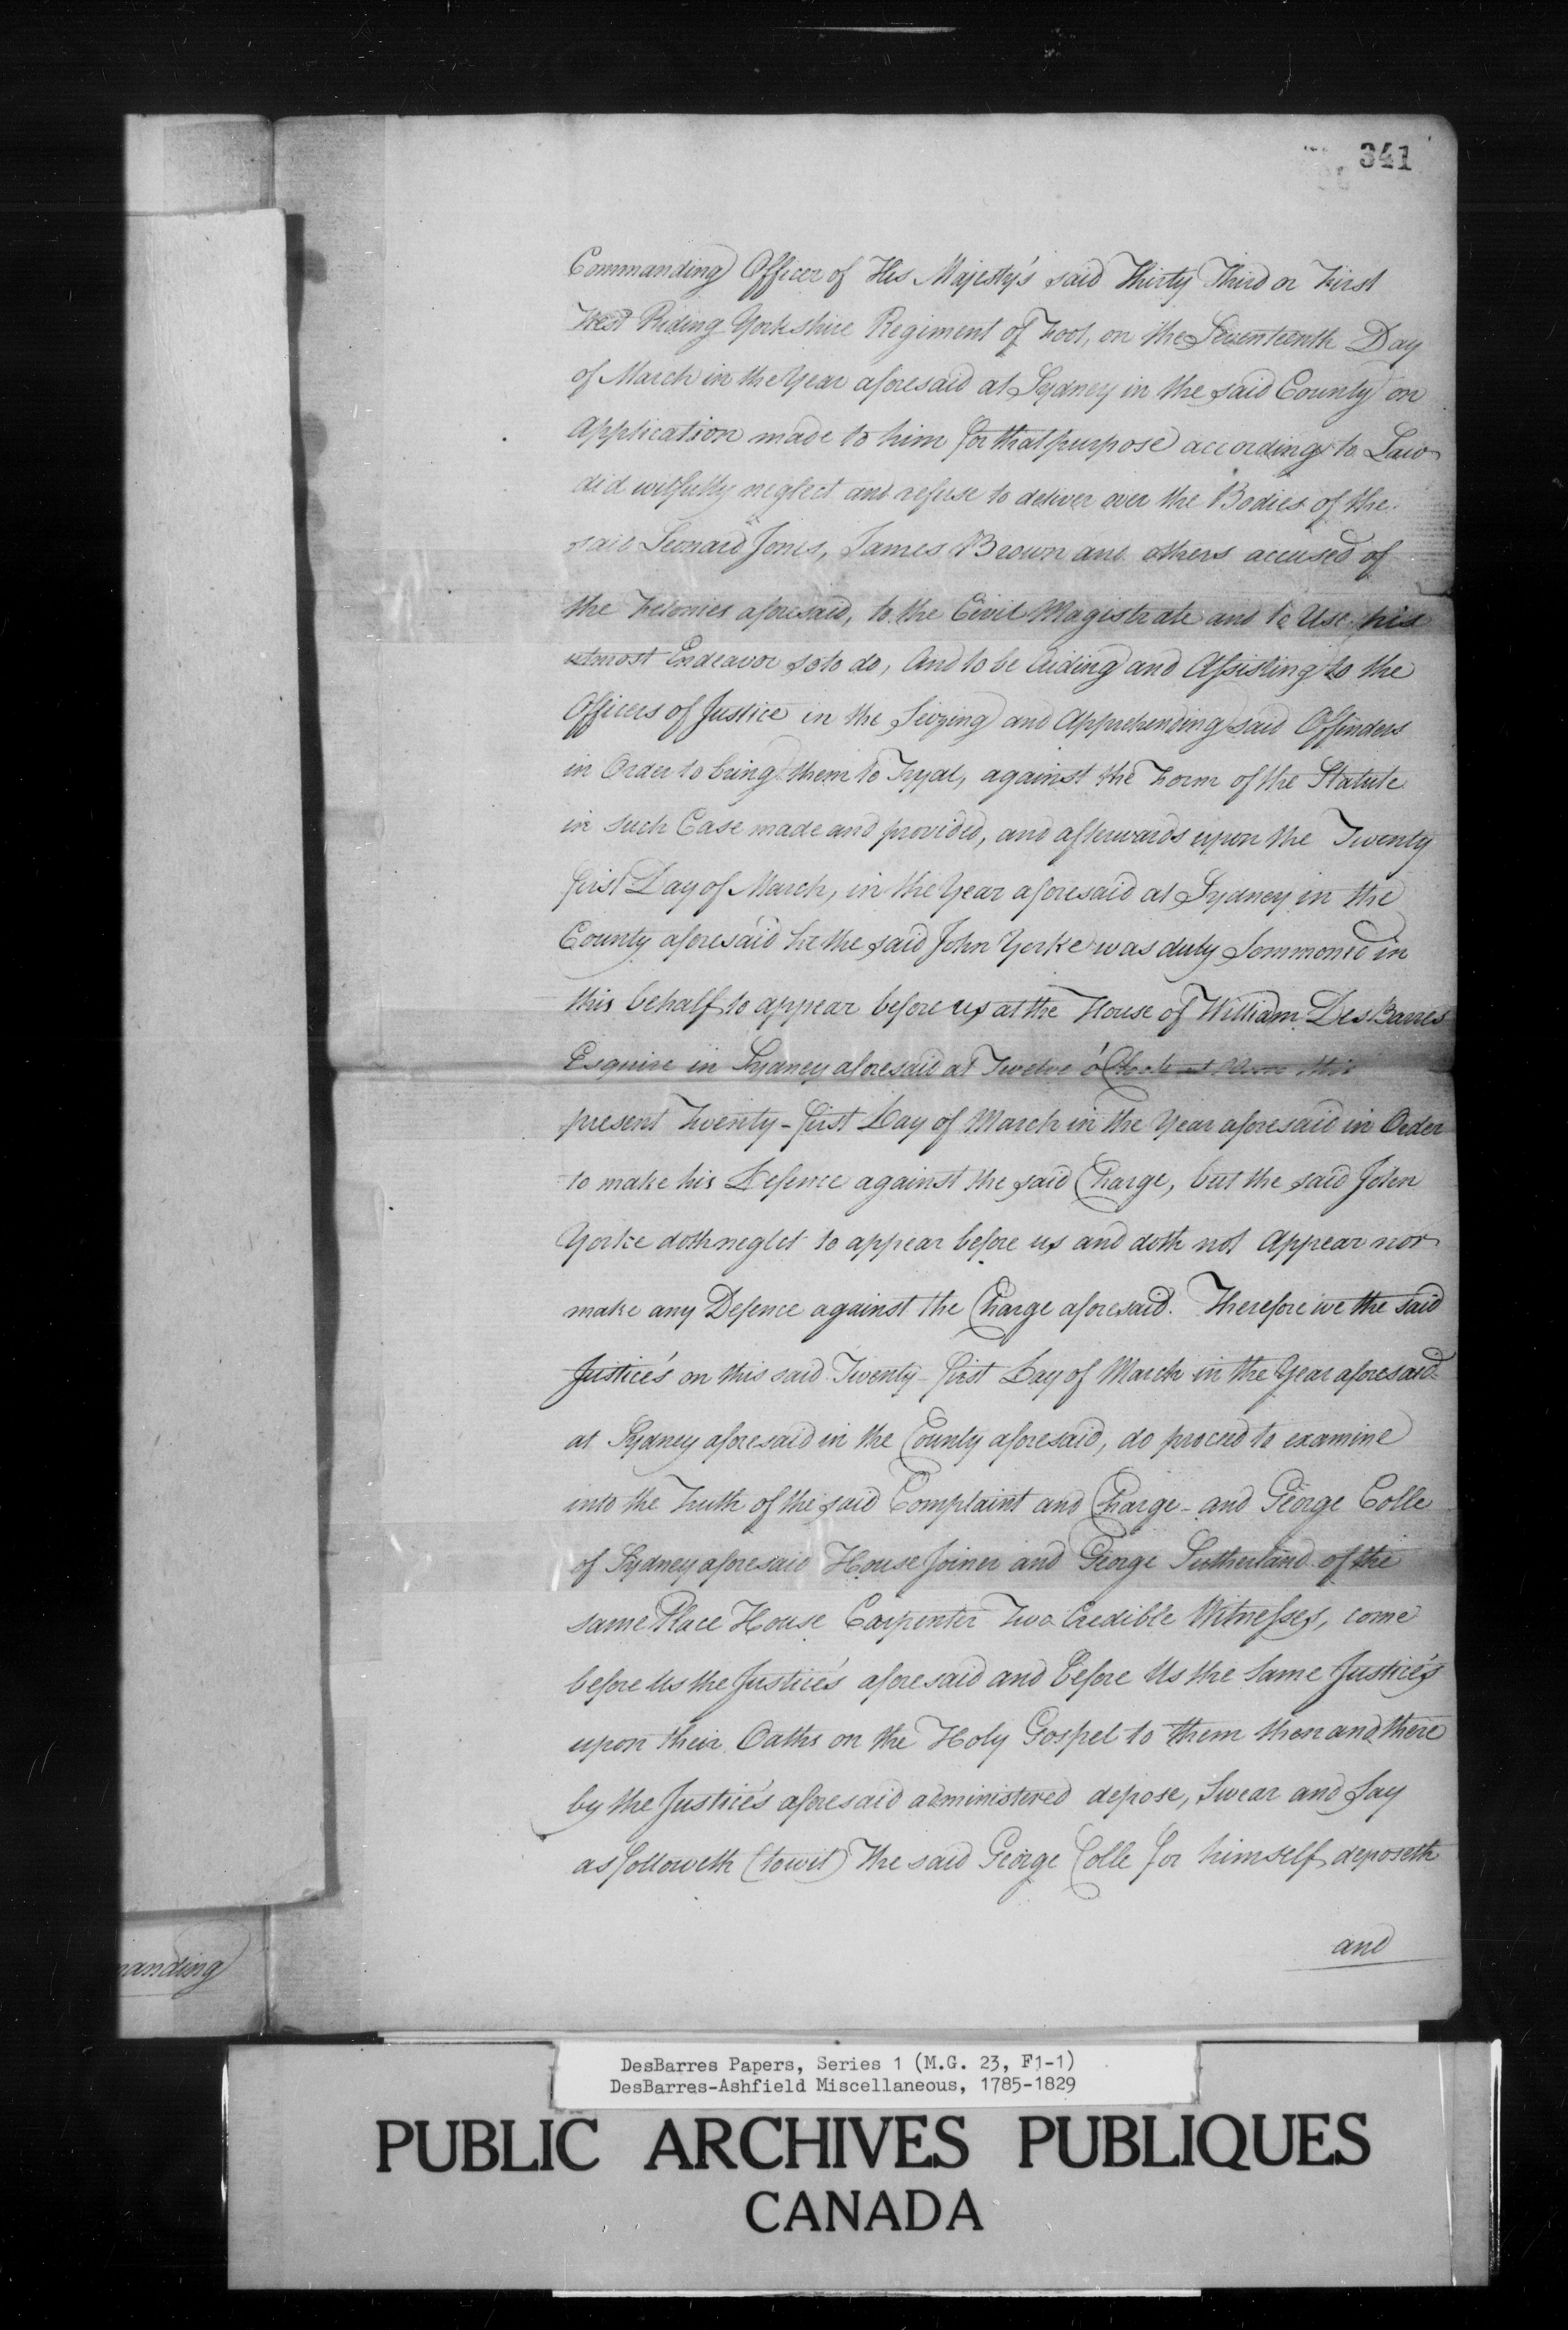 341
Commanding Officer of His Majesty's said Thirty Third or First
West Riding Yorkshire Regiment of Foot, on the Seventeenth Day
of March in the Year aforesaid at Sydney in the said County on
Application made to him for that purpose according to Law
did wilfully neglect and refuse to deliver over the Bodies of the
said Leonard Jones, James Brown and others accused of
the Felonies aforesaid, to the Civil Magistrate and to Use his
utmost Endeavor so to do, And to be Aiding and Assisting to the
Officers of Justice in the Seizing and Apprehending said Offenders
in Order to bring them to Tryal, against the Form of the Statute
in such Case made and provided, and afterwards upon the Twenty
first Day of March, in the Year aforesaid at Sydney in the
County aforesaid he the said John Yorke was duly Sommoned in
this behalf to appear before us at the House of William DesBarres
Esquire in Sydney aforesaid at Twelve o'Clock at Noon this
present Twenty-first Day of March in the Year aforesaid in Order
to make his Defence against the said Charge, but the said John
Yorke doth neglet to appear before us and doth not Appear nor
make any Defence against the Charge aforesaid. Therefore we the said
Justice's on this said Twenty-first Day of March in the Year aforesaid
at Sydney aforesaid in the County aforesaid, do proceed to examine
into the Truth of the said Complaint and Charge - and George Colle
of Sydney aforesaid House Joiner and George Sutherland of the
same Place House Carpenter Two Credible Witnesses, come
before Us the Justice's aforesaid and before Us the Same Justice's
upon their Oaths on the Holy Gospel to them then and there
by the Justice's aforesaid administered depose, Swear and Say
as followeth (to wit) The said George Colle for himself deposeth
and
manding
DesBarres Papers, Series 1 (M.G. 23, F1-1)
DesBarres-Ashfield Miscellaneous, 1785-1829
PUBLIC ARCHIVES PUBLIQUES
CANADA